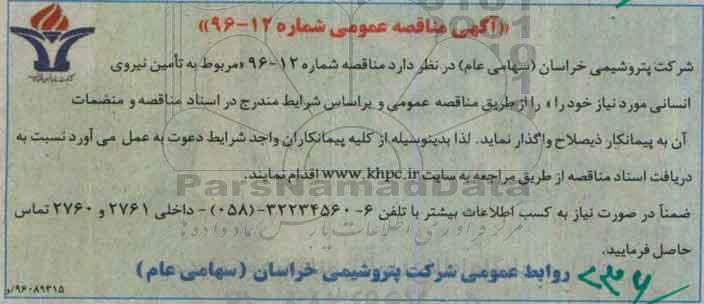 «آگهی مناقصه عمومی شماره ۱۲-۹۶»
شرکت پتروشیمی خراسان (سهامی عام) در نظر دارد مناقصه شماره ۱۲-۹۶ «مربوط به تأمین نیروی
انسانی مورد نیاز خود را» را از طریق مناقصه عمومی و براساس شرایط مندرج در اسناد مناقصه و منضمات
آن به پیمانکار ذیصلاح واگذار نماید. لذا بدینوسیله از کلیه پیمانکاران واجد شرایط دعوت به عمل می آورد نسبت به
دریافت اسناد مناقصه از طریق مراجعه به سایت www.khpc.ir اقدام نمایند.
ParsNamadData
ضمناً در صورت نیاز به کسب اطلاعات بیشتر با تلفن ۶-۳۲۲۳۴۵۶۰-(۰۵۸) - داخلی ۲۷۶۱ و ۲۷۶۰ تماس
حاصل فرمایید.
روابط عمومی شرکت پتروشیمی خراسان (سهامی عام)
۹۶۰۸۹۳۱۵/و